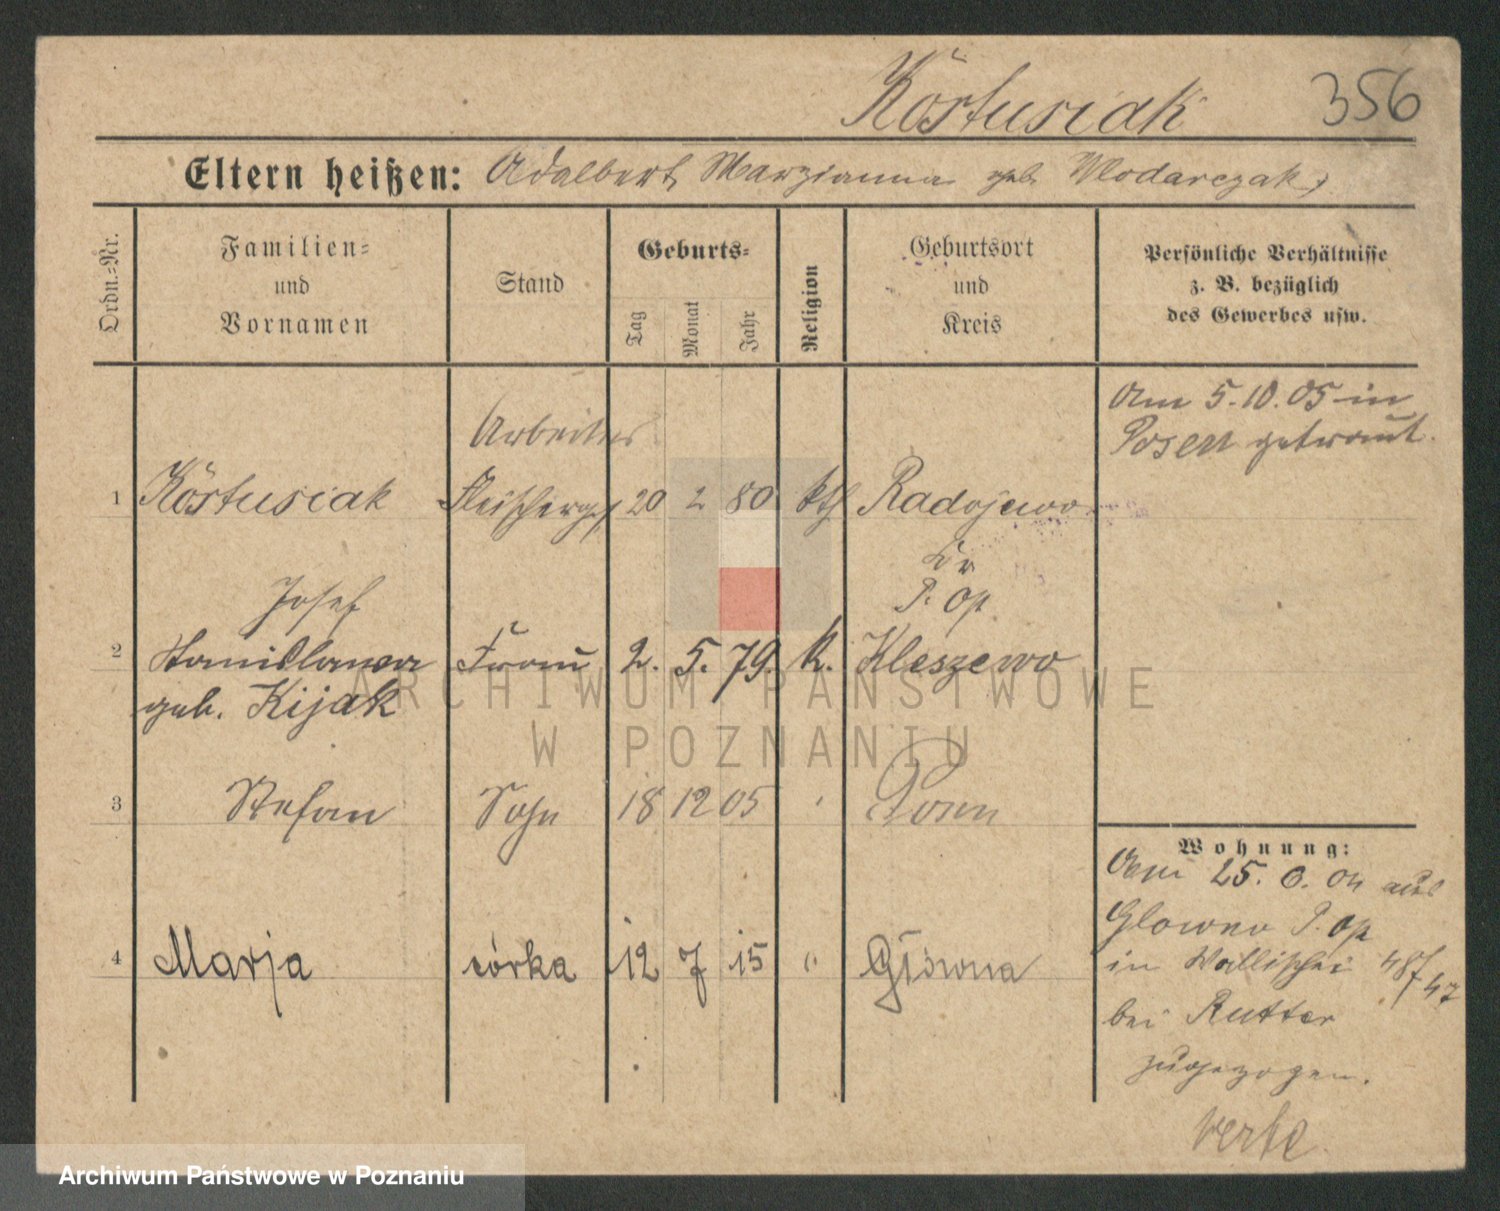 Köstusiak 356
Eltern heißen: Adalbert, Marzianna geb. Wlodarczak,
Ordn.=Nr.
Familien=
und
Vornamen
Stand
Geburts=
Tag
Monat
Jahr
Religion
Geburtsort
und
Kreis
Persönliche Verhältnisse
z. B. bezüglich
des Gewerbes usw.
Am 5.10.05 in
Posen getraut.
Arbeiter
1 Köstusiak Fleischerges 20 2 80 kth Radojewo
Kr
Josef P. Op
2 Stanislawa Frau 2. 5. 79. k. Kleszewo
geb. Kijak
3 Stefan Sohn 18 12 05 " Posen
4 Marja córka 12 7 15 " Główna
Wohnung:
Am 25. 6. 04 aus
Glowno P. Op
in Wallischei 48/47
bei Rutter
zugezogen.
verte
ARCHIWUM PAŃSTWOWE
W POZNANIU
Archiwum Państwowe w Poznaniu